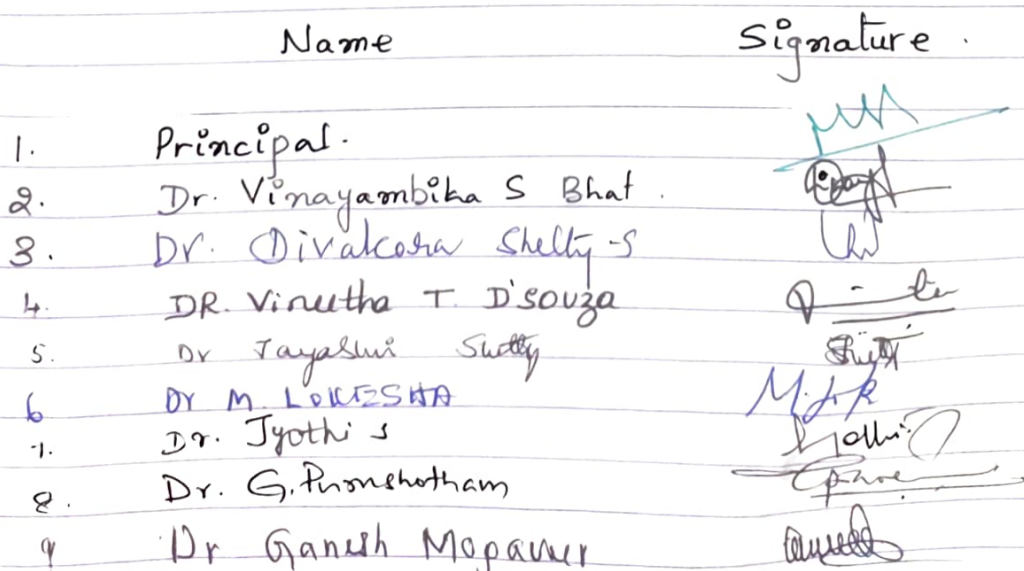 Name Signature .
1. Principal.
2. Dr. Vinayambika S Bhat .
3. Dr. Divakara Shetty S
4. DR. Vineetha T. D'souza
5. Dr Jayashri Shetty
6 Dr M. LOKESHA M.
7. Dr. Jyothi S
8. Dr. G. Purushotham
9 Dr Ganesh